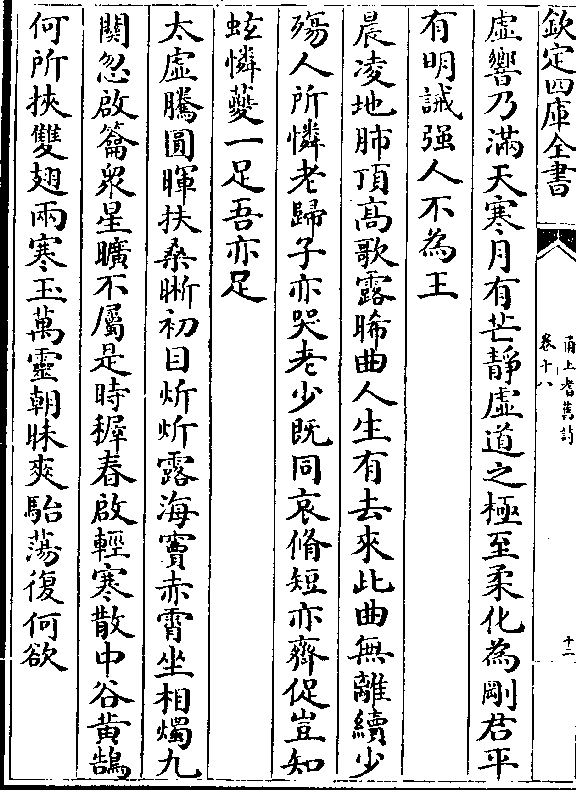 欽定四庫全書
甬上耆舊詩
卷十八
十二
虛響乃滿天寒月有芒靜虛道之極至柔化為剛君平
有明誡强人不為王
晨凌地肺頂髙歌露晞曲人生有去來此曲無離續少
殤人所憐老歸子亦哭老少既同哀脩短亦齊促豈知
蚿憐夔一足吾亦足
太虛騰圓暉扶桑晣初目炘炘露海竇赤霄坐相燭九
關忽啟籥衆星曠不屬是時穉春啟輕寒散中谷黃鵠
何所挾雙翅兩寒玉萬靈朝昧爽駘蕩復何欲